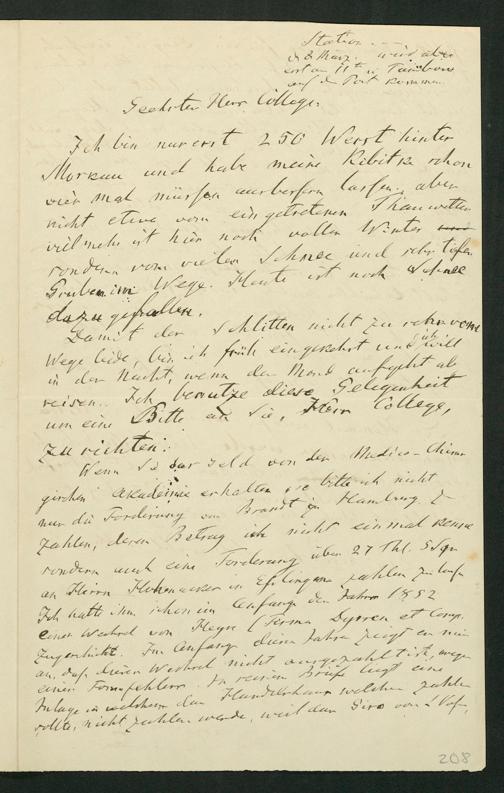 Station
d 8 März. wird aber
erst am 11ten in Tambow
auf die Post kommen
Geehrter Herr College.
Ich bin nur erst 250 Werst hinter
Moskau und habe meine Kibitke schon
vier mal müssen ausbessern lassen, aber
nicht etwa vom eingetretenen Thauwetter
vielmehr ist hier noch voller Winter
sondern vom vielen Schnee und sehr tiefen
Gruben im Wege. Heute ist noch Schnee
dazu gefallen.
Damit der Schlitten nicht zu sehr vom
Wege leide, bin ich früh eingekehrt und will
in der Nacht, wenn der Mond aufgeht ab
reisen. Ich benutze diese Gelegenheit
um eine Bitte an Sie, Herr College,
zu richten:
Wenn Sie Geld von der Medico-Chirur
gischen Akademie erhalten, so bitte ich nicht
nur die Forderung von Brandt in Hamburg zu
zahlen, deren Betrag ich nicht einmal kenne
sondern auch eine Forderung über 27 Thl. 5 Sgr
an Herrn Hohenacker in Esslingen zahlen zu lassen
Ich hatte ihm schon im Anfange des Jahres 1852
einen Wechsel von Heyse (Firma et Comp.
zugeschickt. Im Anfang dieses Jahres zeigt er mir
an, daß dieser Wechsel nicht ausgezahlt ist, wegen
eines Formfehlers. In seinem Briefe liegt eine
Inlage in welchem das Handelshaus welches zahlen
sollte, nicht zahlen werde, weil das Giro von
208